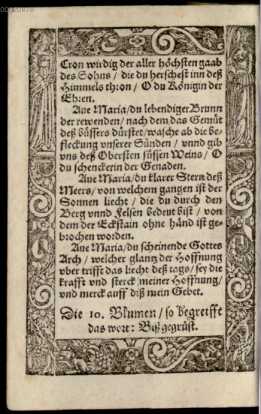 Cron wirdig der aller höchsten gaab
des Sohns / die du herschest inn deß
Himmels thron / O du Königin der
Ehren.
Aue Maria / du lebendiger Brunn
der rewenden / nach dem das Gemüt
deß büssers dürstet / wasche ab die be-
fleckung vnserer Sünden / vnnd gib
vns deß Obersten süssen Weins / O
du schenckerin der Genaden.
Aue Maria / du klarer Stern deß
Meers / von welchem gangen ist der
Sonnen liecht / die du durch den
Berg vnnd Felsen bedeut bist / von
dem der Eckstain ohne händ ist ge-
brochen worden.
Aue Maria / du scheinende Gottes
Arch / welcher glantz der Hoffnung
vber trifft das liecht deß tags / sey die
krafft vnd sterck meiner Hoffnung /
vnd merck auff diß mein Gebet.
Die 10. Blumen / so begreifft
das wort: Biß gegrüst.